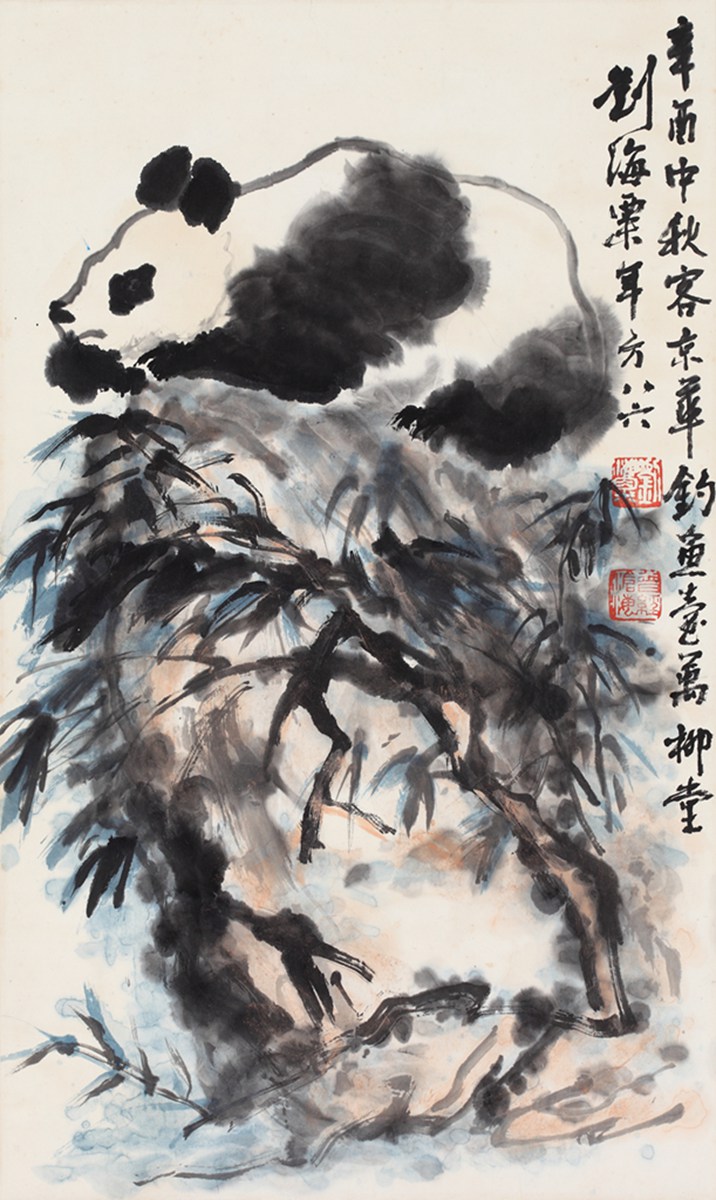 辛酉中秋客京華釣魚臺萬柳堂
劉海粟年方八六